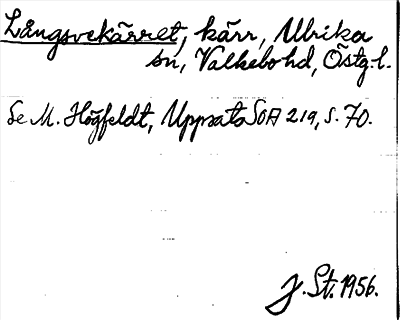 Långsvekärret, kärr, Ulrika
sn, Valkebo hd, Östg-l.
Se M. Högfeldt, Uppsats SOA 219, s. 70.
J. St. 1956.